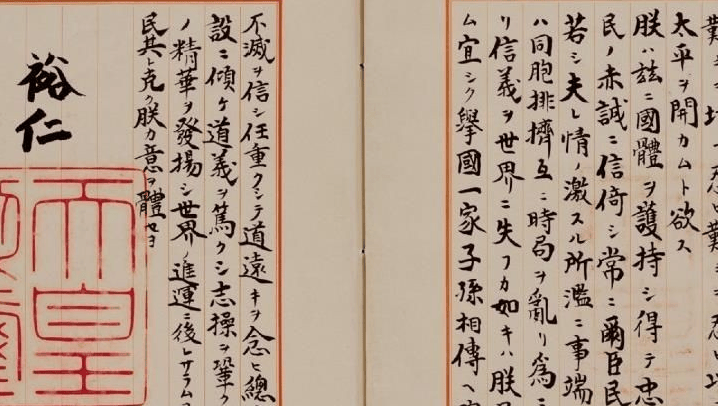 太平ヲ開カムト欲ス
朕ハ茲ニ國體ヲ護持シ得テ忠
民ノ赤誠ニ信倚シ常ニ爾臣民
若シ夫レ情ノ激スル所濫ニ事端
ハ同胞排擠互ニ時局ヲ亂リ爲ニ
リ信義ヲ世界ニ失フカ如キハ朕
ム宜シク擧國一家子孫相傳ヘ
不滅ヲ信シ任重クシテ道遠キヲ念ヒ總
設ニ傾ケ道義ヲ篤クシ志操ヲ鞏ク
ノ精華ヲ發揚シ世界ノ進運ニ後レサラム
民其レ克ク朕カ意ヲ體セヨ
裕仁
天皇